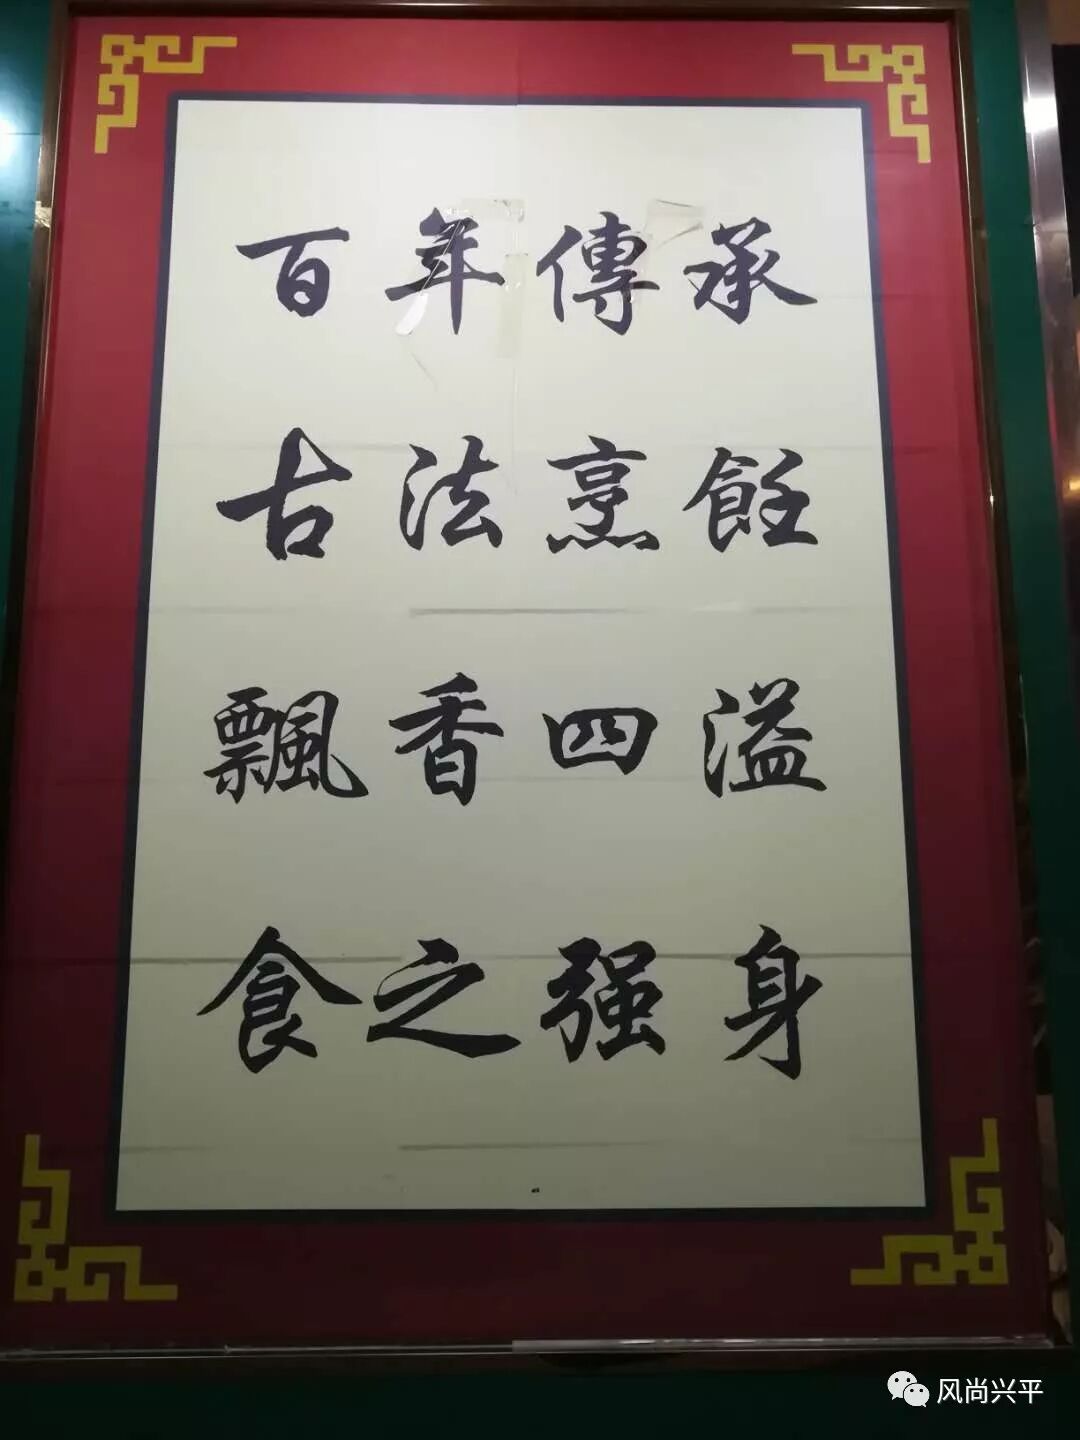 百年傳承
古法烹飪
飄香四溢
食之强身
风尚兴平